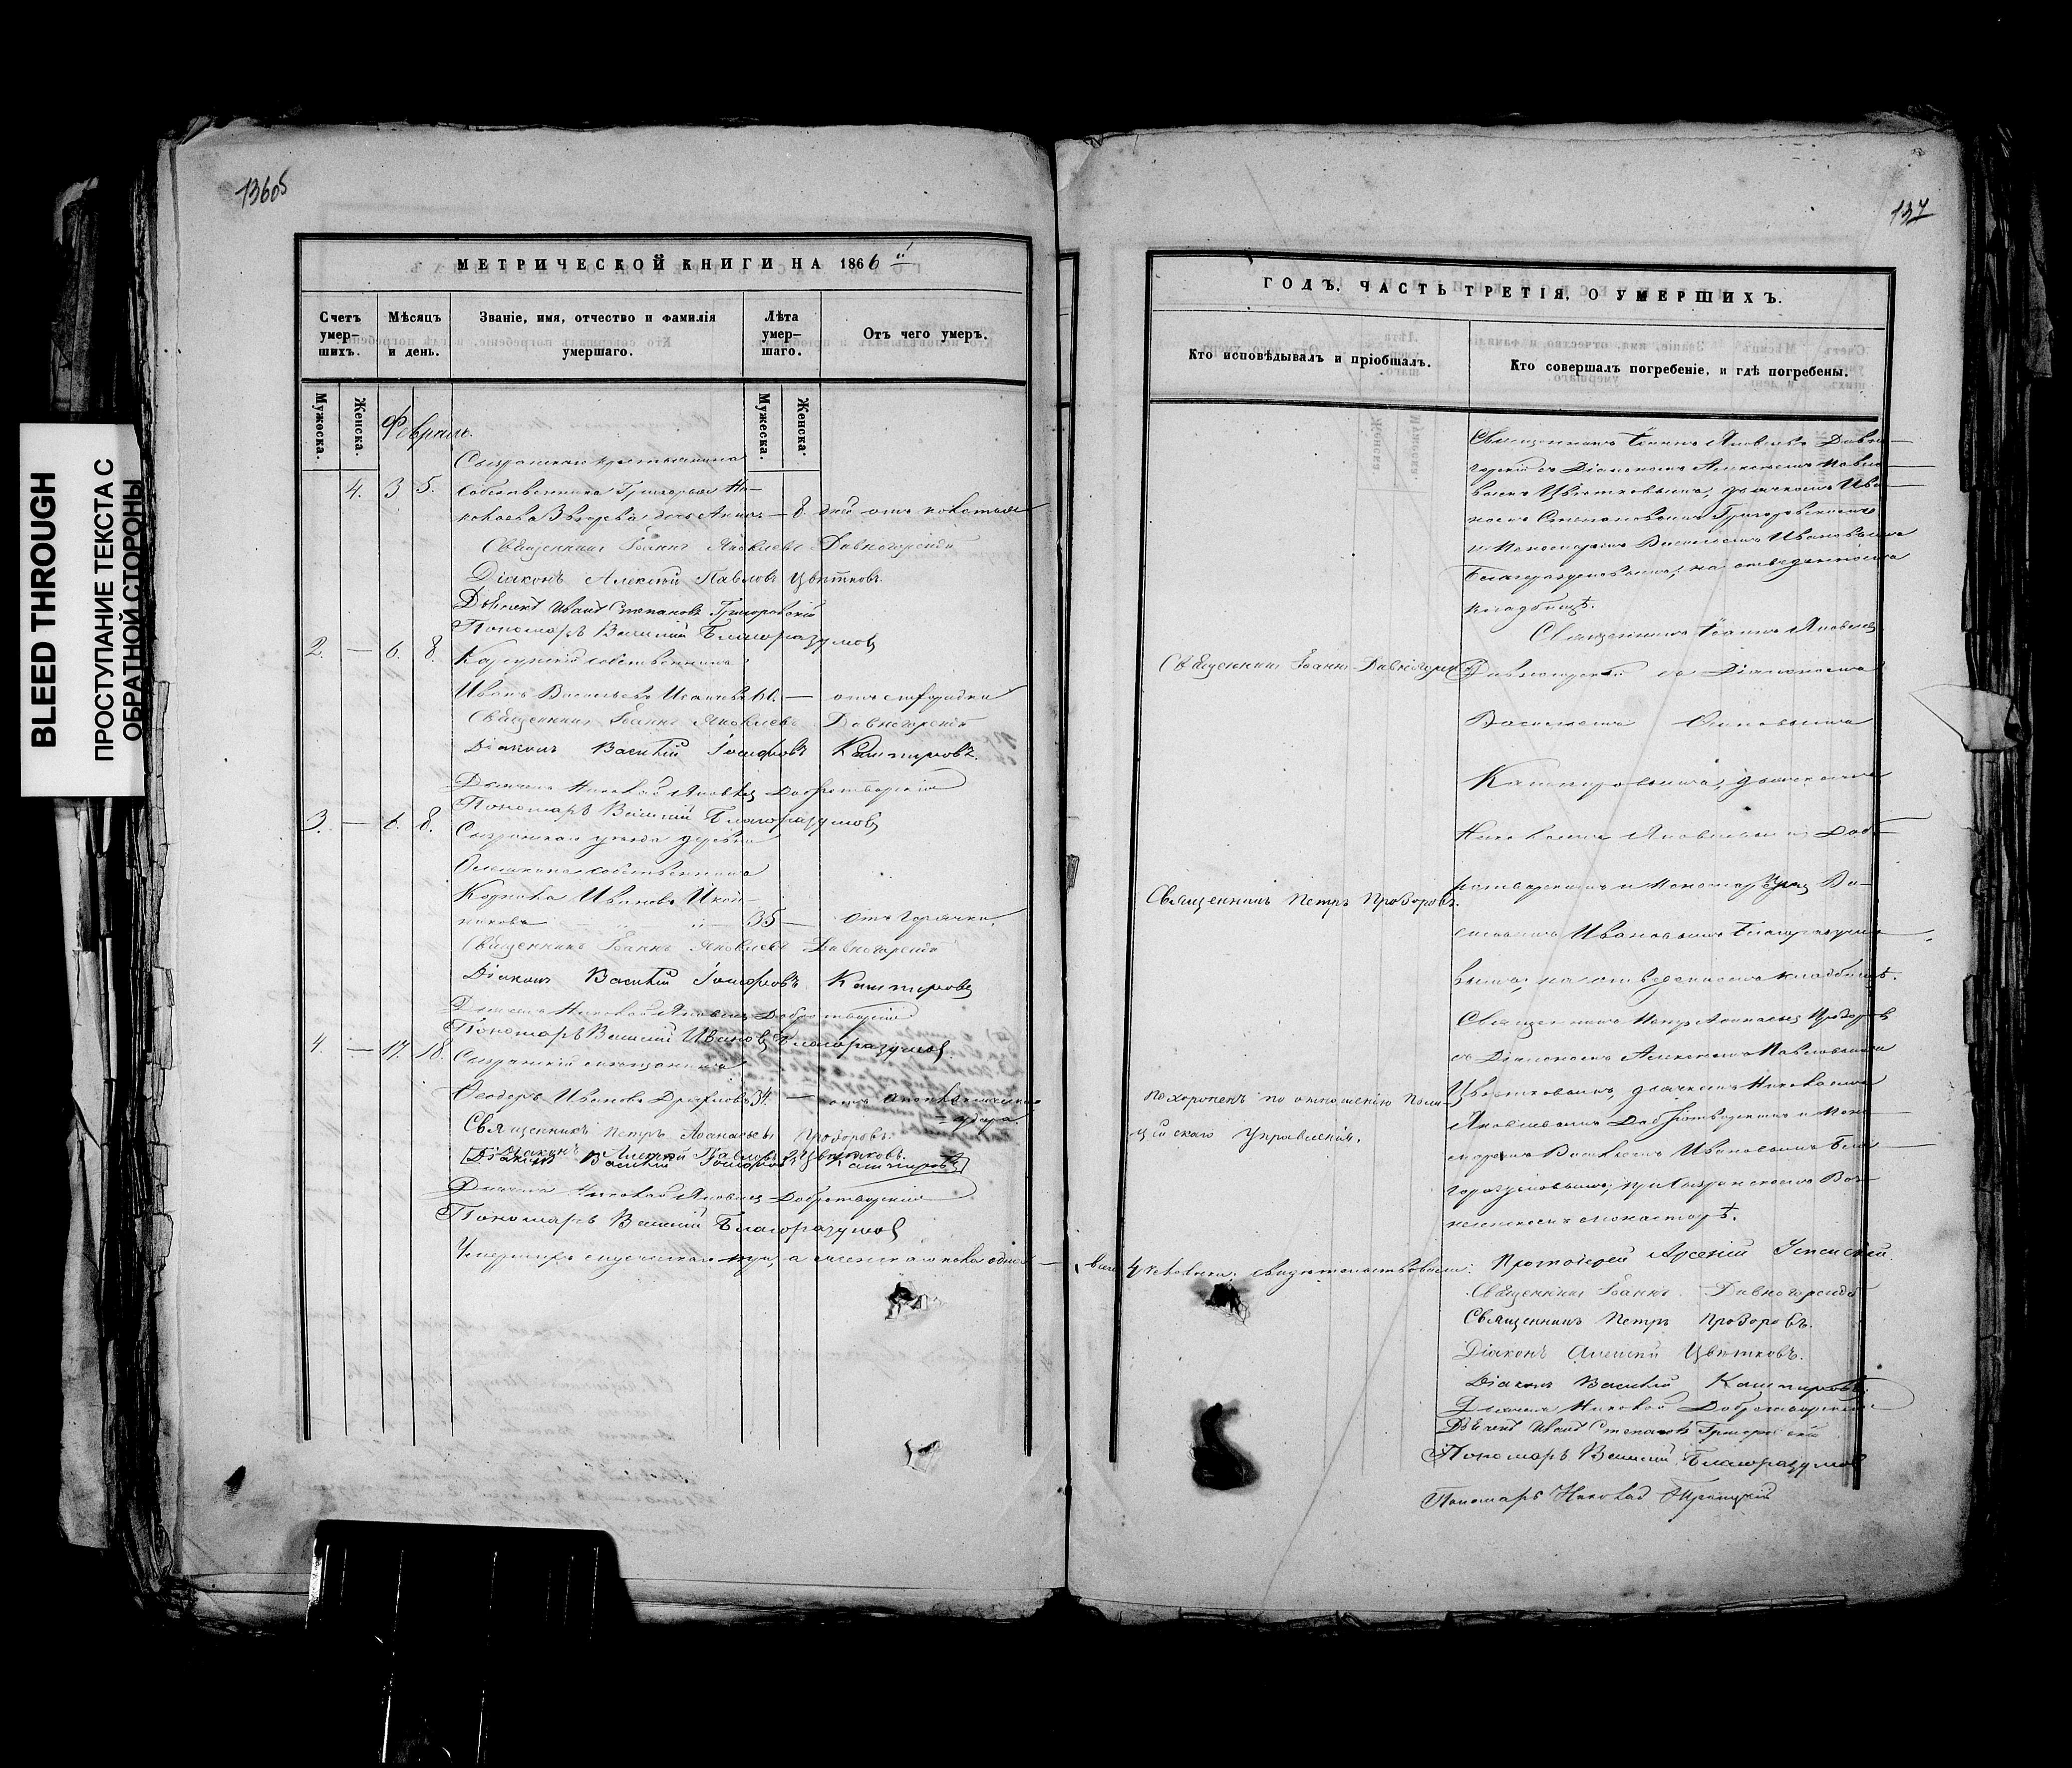 BLEED THROUGH
ПРОСТУПАНИЕ ТЕКСТА С
ОБРАТНОЙ СТОРОНЫ
136об
МЕТРИЧЕСКОЙ КНИГИ НА 1866й
Счетъ умер-шихъ.
Мѣсяцъ и день.
Званіе, имя, отчество и фамилія умершаго.
Лѣта умер-шаго.
Отъ чего умеръ.
Мужеска.
Женска.
Мужеска.
Женска.
Февраль.
Сызранскаго крестьянина
4. 3 5. собственника Григорья Ни-
колаева дочь Анна — 8 дней отъ
Священникъ Іоаннъ Яковлевъ Дивногорскій
Діаконъ Алексѣй Павловъ Цвѣтковъ.
Дьячекъ Иванъ Степановъ Григоровскій
Пономарь Василій Благоразумовъ
2. — 6. 8. собственникъ
Иванъ Васильевъ 61. — отъ
Священникъ Іоаннъ Яковлевъ Дивногорскій
Діаконъ Василій Іосифовъ Каштировъ.
Дьячекъ Николай Яковлевъ Добротворскій
Пономарь Василій Благоразумовъ
3. — 6. 8. Сызранскаго уѣзда деревни
собственникъ
Иванова
35 — отъ горячки.
Священникъ Іоаннъ Яковлевъ Дивногорскій
Діаконъ Василій Іосифовъ Каштировъ
Дьячекъ Николай Яковлевъ Добротворскій
Пономарь Василій Ивановъ Благоразумовъ
4. — 17. 18. Сызранскій мѣщанинъ
Ѳеодоръ Ивановъ 34. — отъ апоплексическаго
удара.
Священникъ Петръ Аѳанасьевъ Прозоровъ.
Діаконъ Алексѣй Павловъ Цвѣтковъ.
[Діаконъ Василій Іосифовъ Каштировъ]
Дьячекъ Николай Яковлевъ Добротворскій
Пономарь Василій Благоразумовъ
Умершихъ мужескаго три, а женскаго пола одна —
137
ГОДЪ. ЧАСТЬ ТРЕТІЯ, О УМЕРШИХЪ.
Кто исповѣдывалъ и пріобщалъ.
Кто совершалъ погребеніе, и гдѣ погребены.
Священникъ Іоаннъ Яковлевъ Дивно-
горскій съ Діакономъ Алексѣемъ Павло-
вымъ Цвѣтковымъ, дьячкомъ Ива-
номъ Степановымъ Григоровскимъ
и Пономаремъ Василіемъ Ивановымъ
Благоразумовымъ, на отведенномъ
кладбищѣ.
Священникъ Іоаннъ Яковлевъ
Священникъ Іоаннъ Дивногорскій
Дивногорскій съ Діакономъ
Василіемъ
Каштировымъ, дьячкомъ
Николаемъ Яковлевымъ Доб-
Священникъ Петръ Прозоровъ.
ротворскимъ и Пономаремъ Ва-
силіемъ Ивановымъ Благоразумо-
вымъ, на отведенномъ кладбищѣ.
Священникъ Петръ Аѳанасьевъ Прозоровъ
съ Діакономъ Алексѣемъ Павловымъ
Похороненъ по отношенію Поли-
цейскаго Управленія.
Цвѣтковымъ, дьячкомъ Николаемъ
Яковлевымъ Добротворскимъ и Поно-
маремъ Василіемъ Ивановымъ Бла-
горазумовымъ, при Сызранскомъ Воз-
несенскомъ монастырѣ.
всего 4 человѣка; свидѣтельствовали: Протоіерей Арсеній Успенскій.
Священникъ Іоаннъ Дивногорскій
Священникъ Петръ Прозоровъ.
Діаконъ Алексѣй Цвѣтковъ.
Діаконъ Василій Каштировъ.
Дьячекъ Николай Добротворскій
Дьячекъ Иванъ Степановъ Григоровскій
Пономарь Василій Благоразумовъ
Пономарь Николай Троицкій